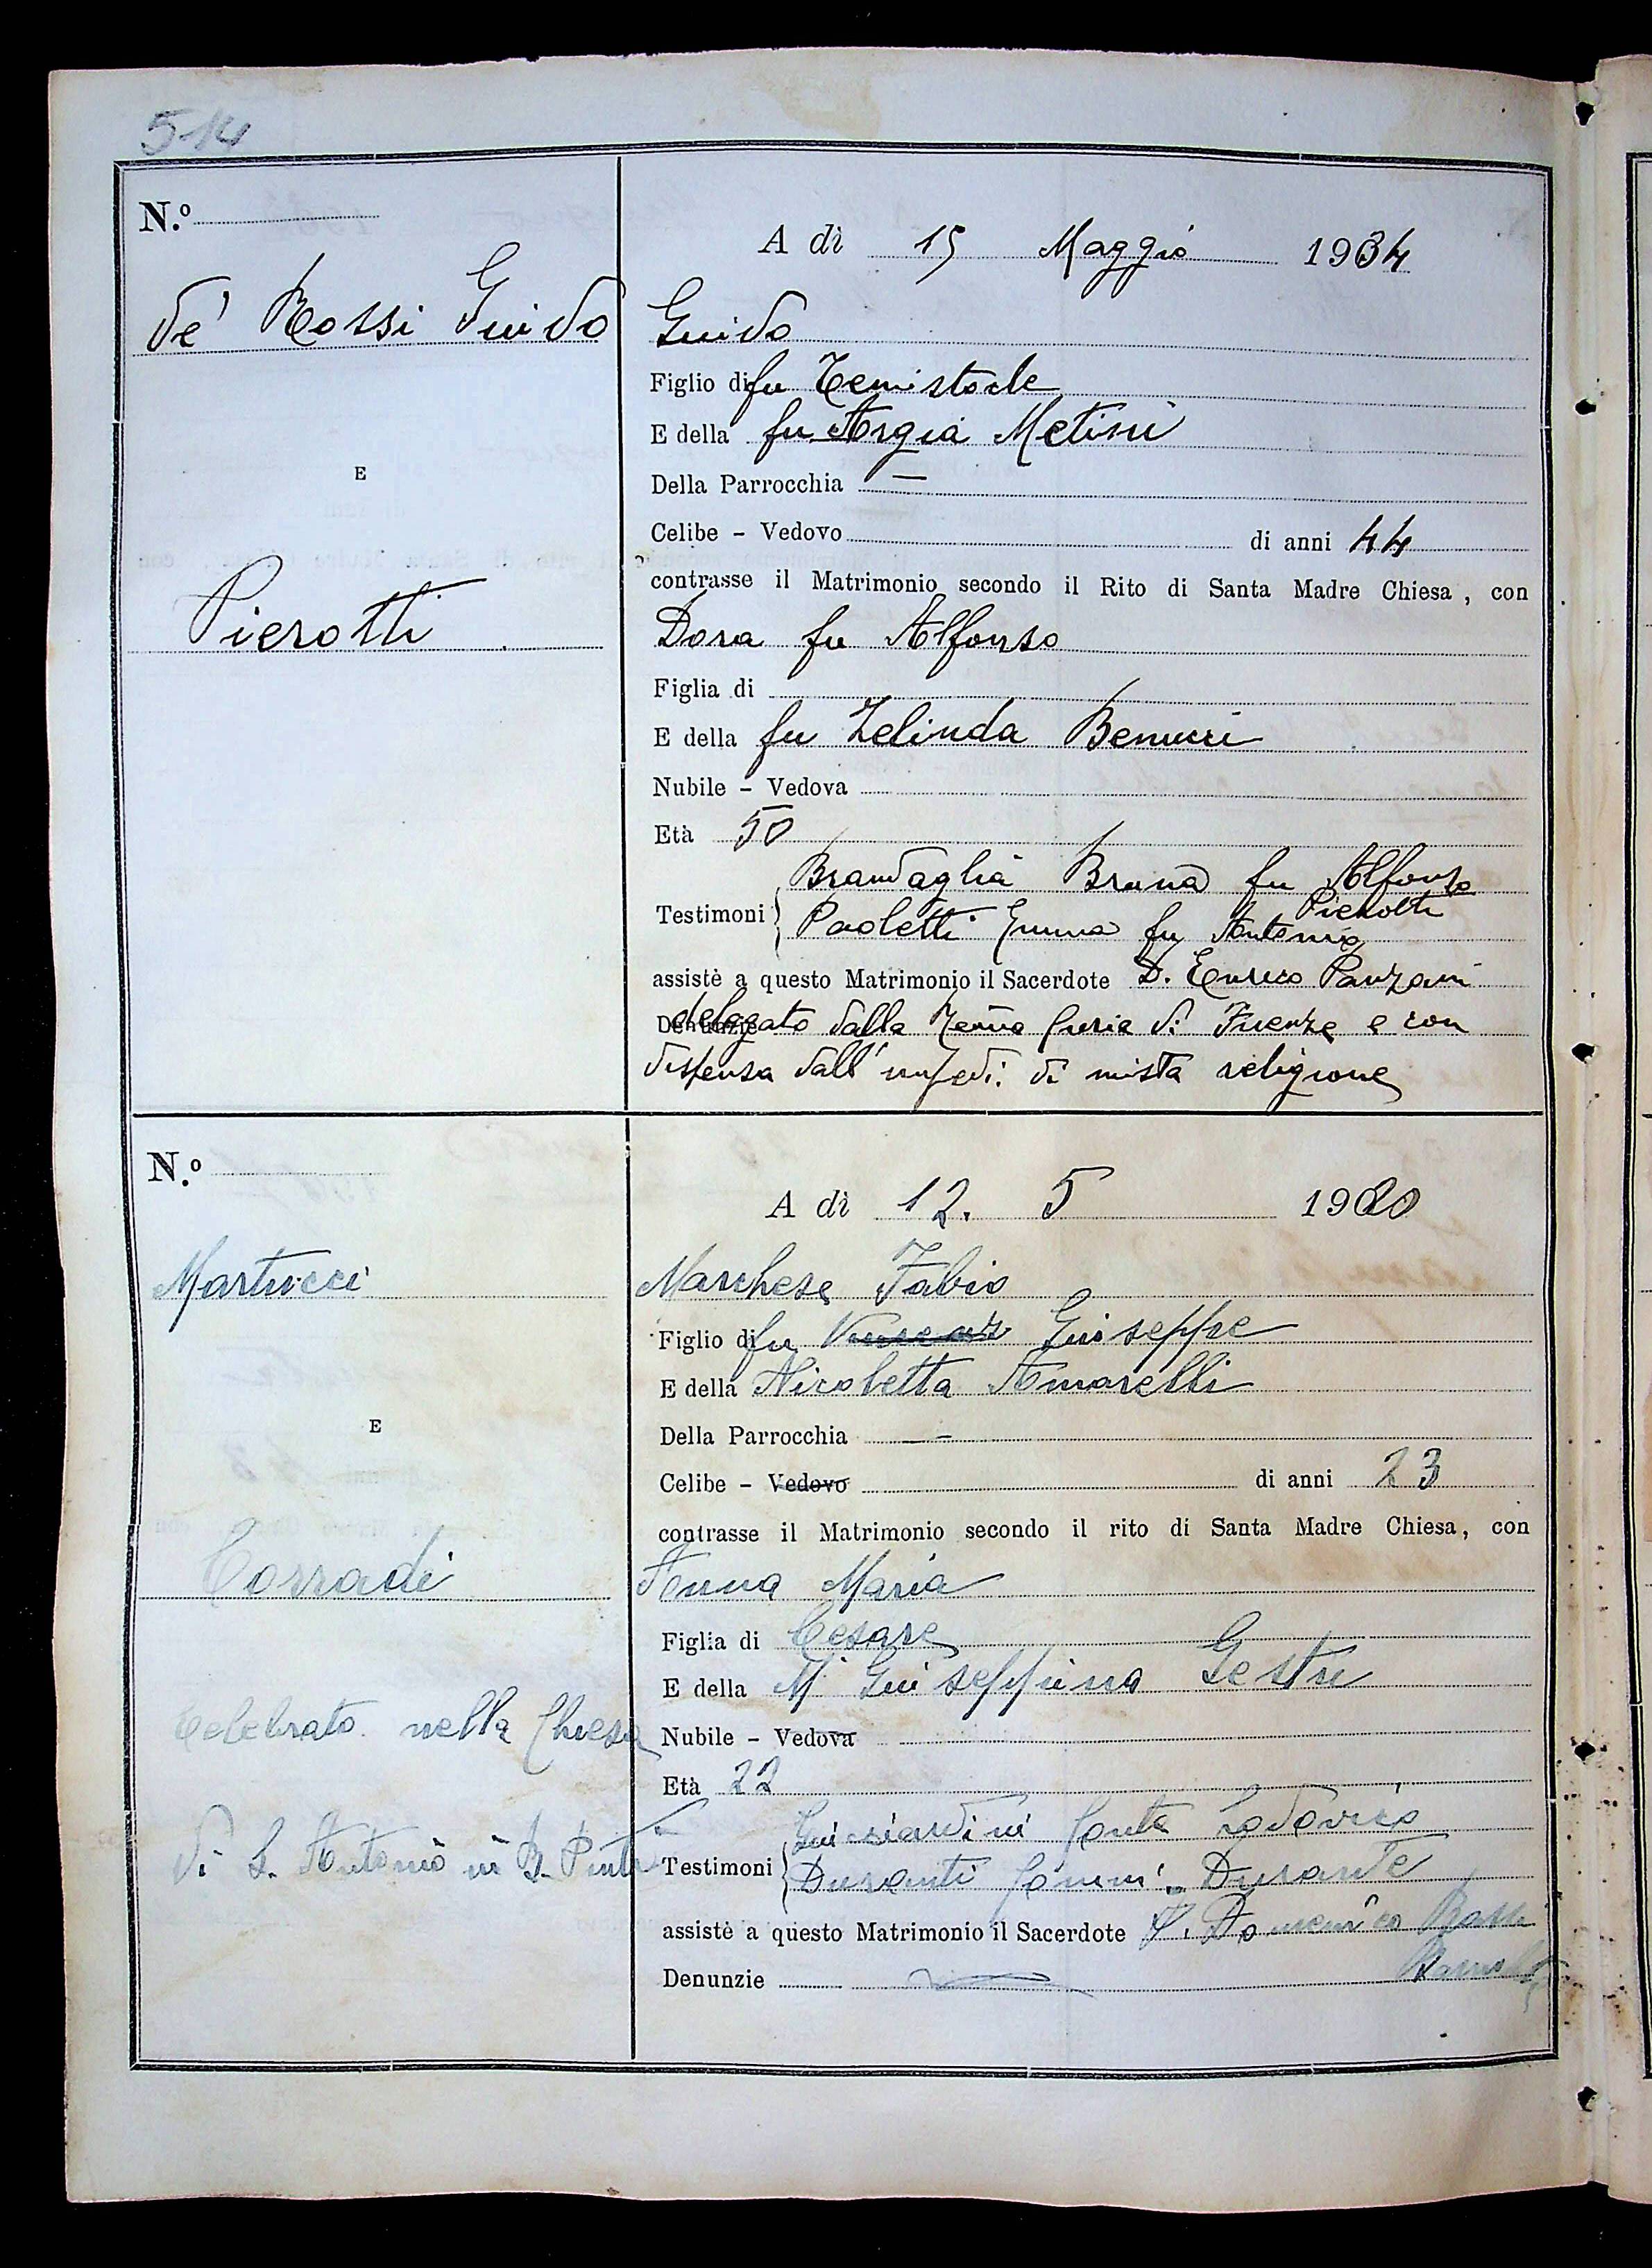 514
N.º
A dì 15 Maggio 1934
de' Rossi Guido
Guido
Figlio di fu Temistocle
E della fu Argia Metini
E
Della Parrocchia —
Celibe - Vedovo di anni 44
contrasse il Matrimonio secondo il Rito di Santa Madre Chiesa, con
Pierotti
Dora fu Alfonso
Figlia di
E della fu Zelinda Benucci
Nubile - Vedova
Età 50
Testimoni
Brandaglia Bruna fu Alfonso
Pierotti
Paoletti Emma fu Antonio
assistè a questo Matrimonio il Sacerdote D. Enrico Panzani
Denunzie
delegato dalla Curia di Firenze e con
dispensa dall' impedi. di mista religione
N.º
A dì 12. 5 1920
Martucci
Marchese Fabio
Figlio di fu Giuseppe
E della Nicoletta Amarelli
E
Della Parrocchia —
Celibe - Vedovo di anni 23
contrasse il Matrimonio secondo il rito di Santa Madre Chiesa, con
Corradi
Anna Maria
Figlia di Cesare
E della M. Giuseppina Gestri
Celebrato nella Chiesa
Nubile - Vedova
Età 22
di S. Antonio in B. Pinti
Testimoni
Guicciardini Conte Lodovico
Duranti Durante
assistè a questo Matrimonio il Sacerdote P. Domenico Bassi
Barnabita
Denunzie